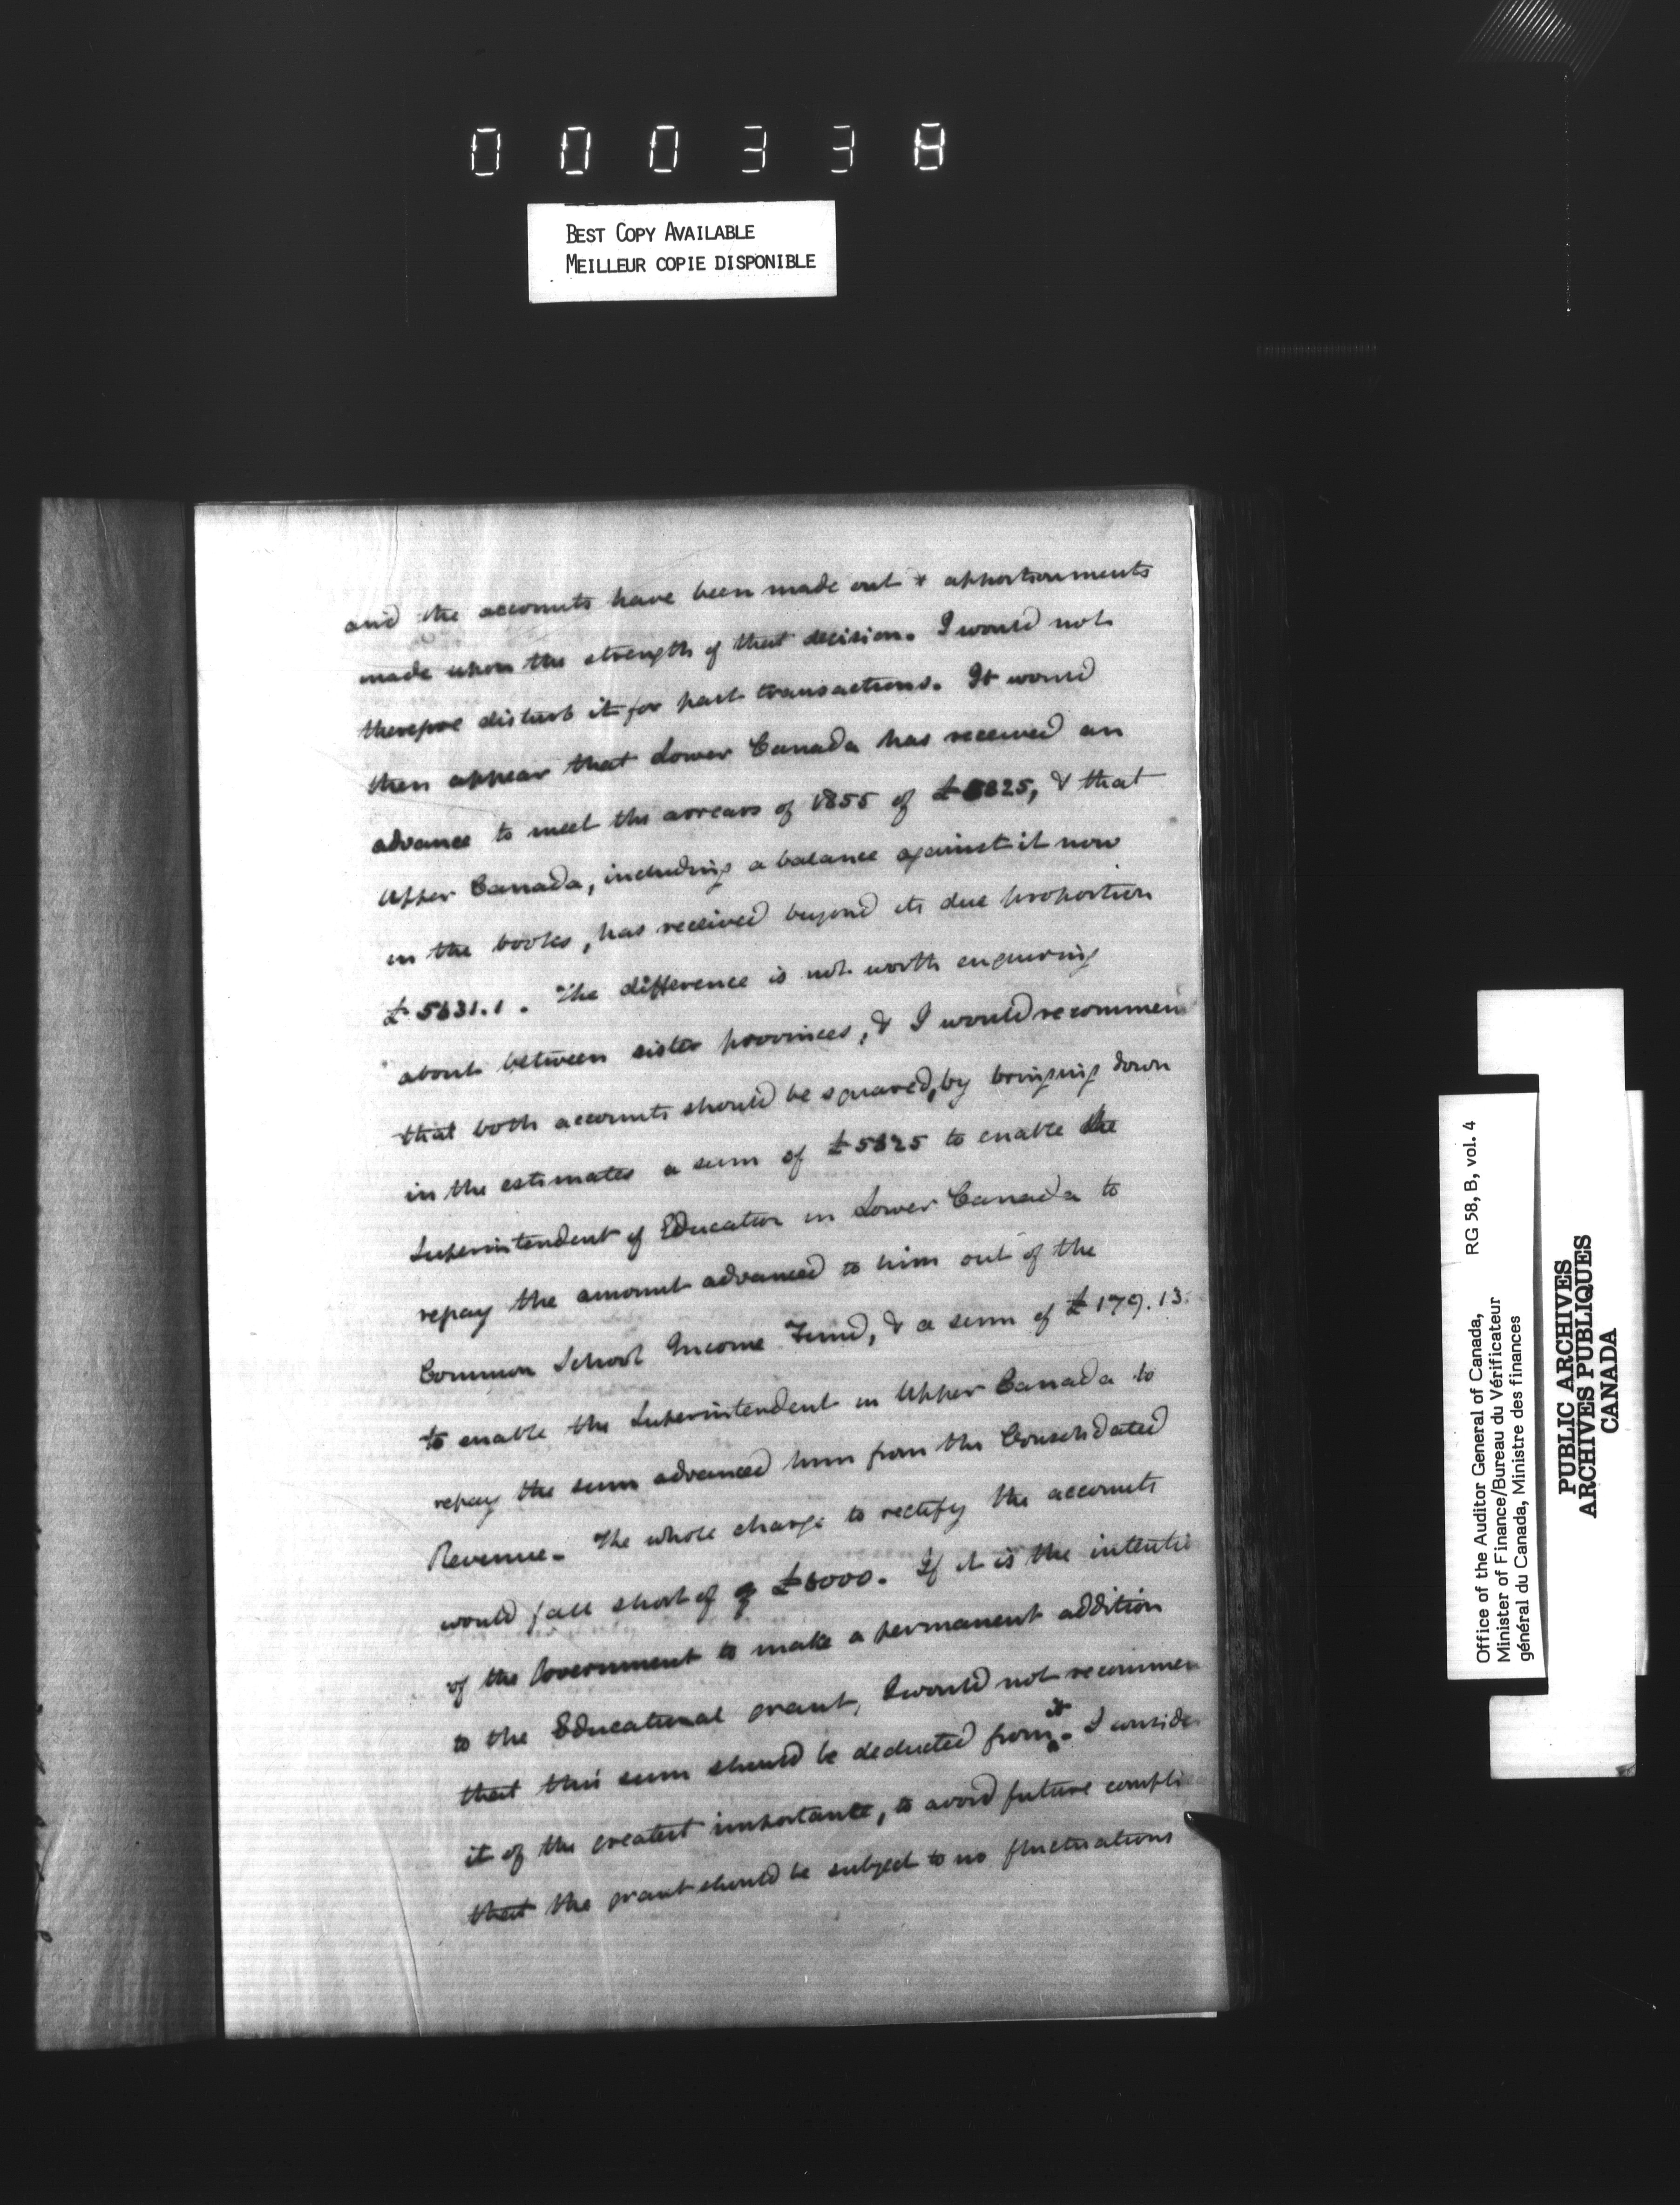 000338
BEST COPY AVAILABLE
MEILLEUR COPIE DISPONIBLE
and the accounts have been made out & apportionments
made upon the strength of that decision. I would not
therefore disturb it for past transactions. It would
then appear that Lower Canada has received an
advance to meet the arrears of 1855 of £5825, & that
Upper Canada, including a balance against it now
in the books, has received beyond its due proportion
£5631.1. The difference is not worth enquiring
about between sister provinces, & I would recommend
that both accounts should be squared, by bringing down
in the estimates a sum of £5825 to enable the
Superintendent of Education in Lower Canada to
repay the amount advanced to him out of the
Common School Income Fund, & a sum of £179.13.
to enable the Superintendent in Upper Canada to
repay the sum advanced him from the Consolidated
Revenue. The whole charge to rectify the accounts
would fall short of £6000. If it is the intentio
of the Government to make a permanent addition
to the Educational grant, I would not recommen
that this sum should be deducted from it. I conside
it of the greatest importance, to avoid future compli
that the grant should be subject to no fluctuations
Office of the Auditor General of Canada, RG 58, B, vol. 4
Minister of Finance/Bureau du Vérificateur
général du Canada, Ministre des finances
PUBLIC ARCHIVES
ARCHIVES PUBLIQUES
CANADA